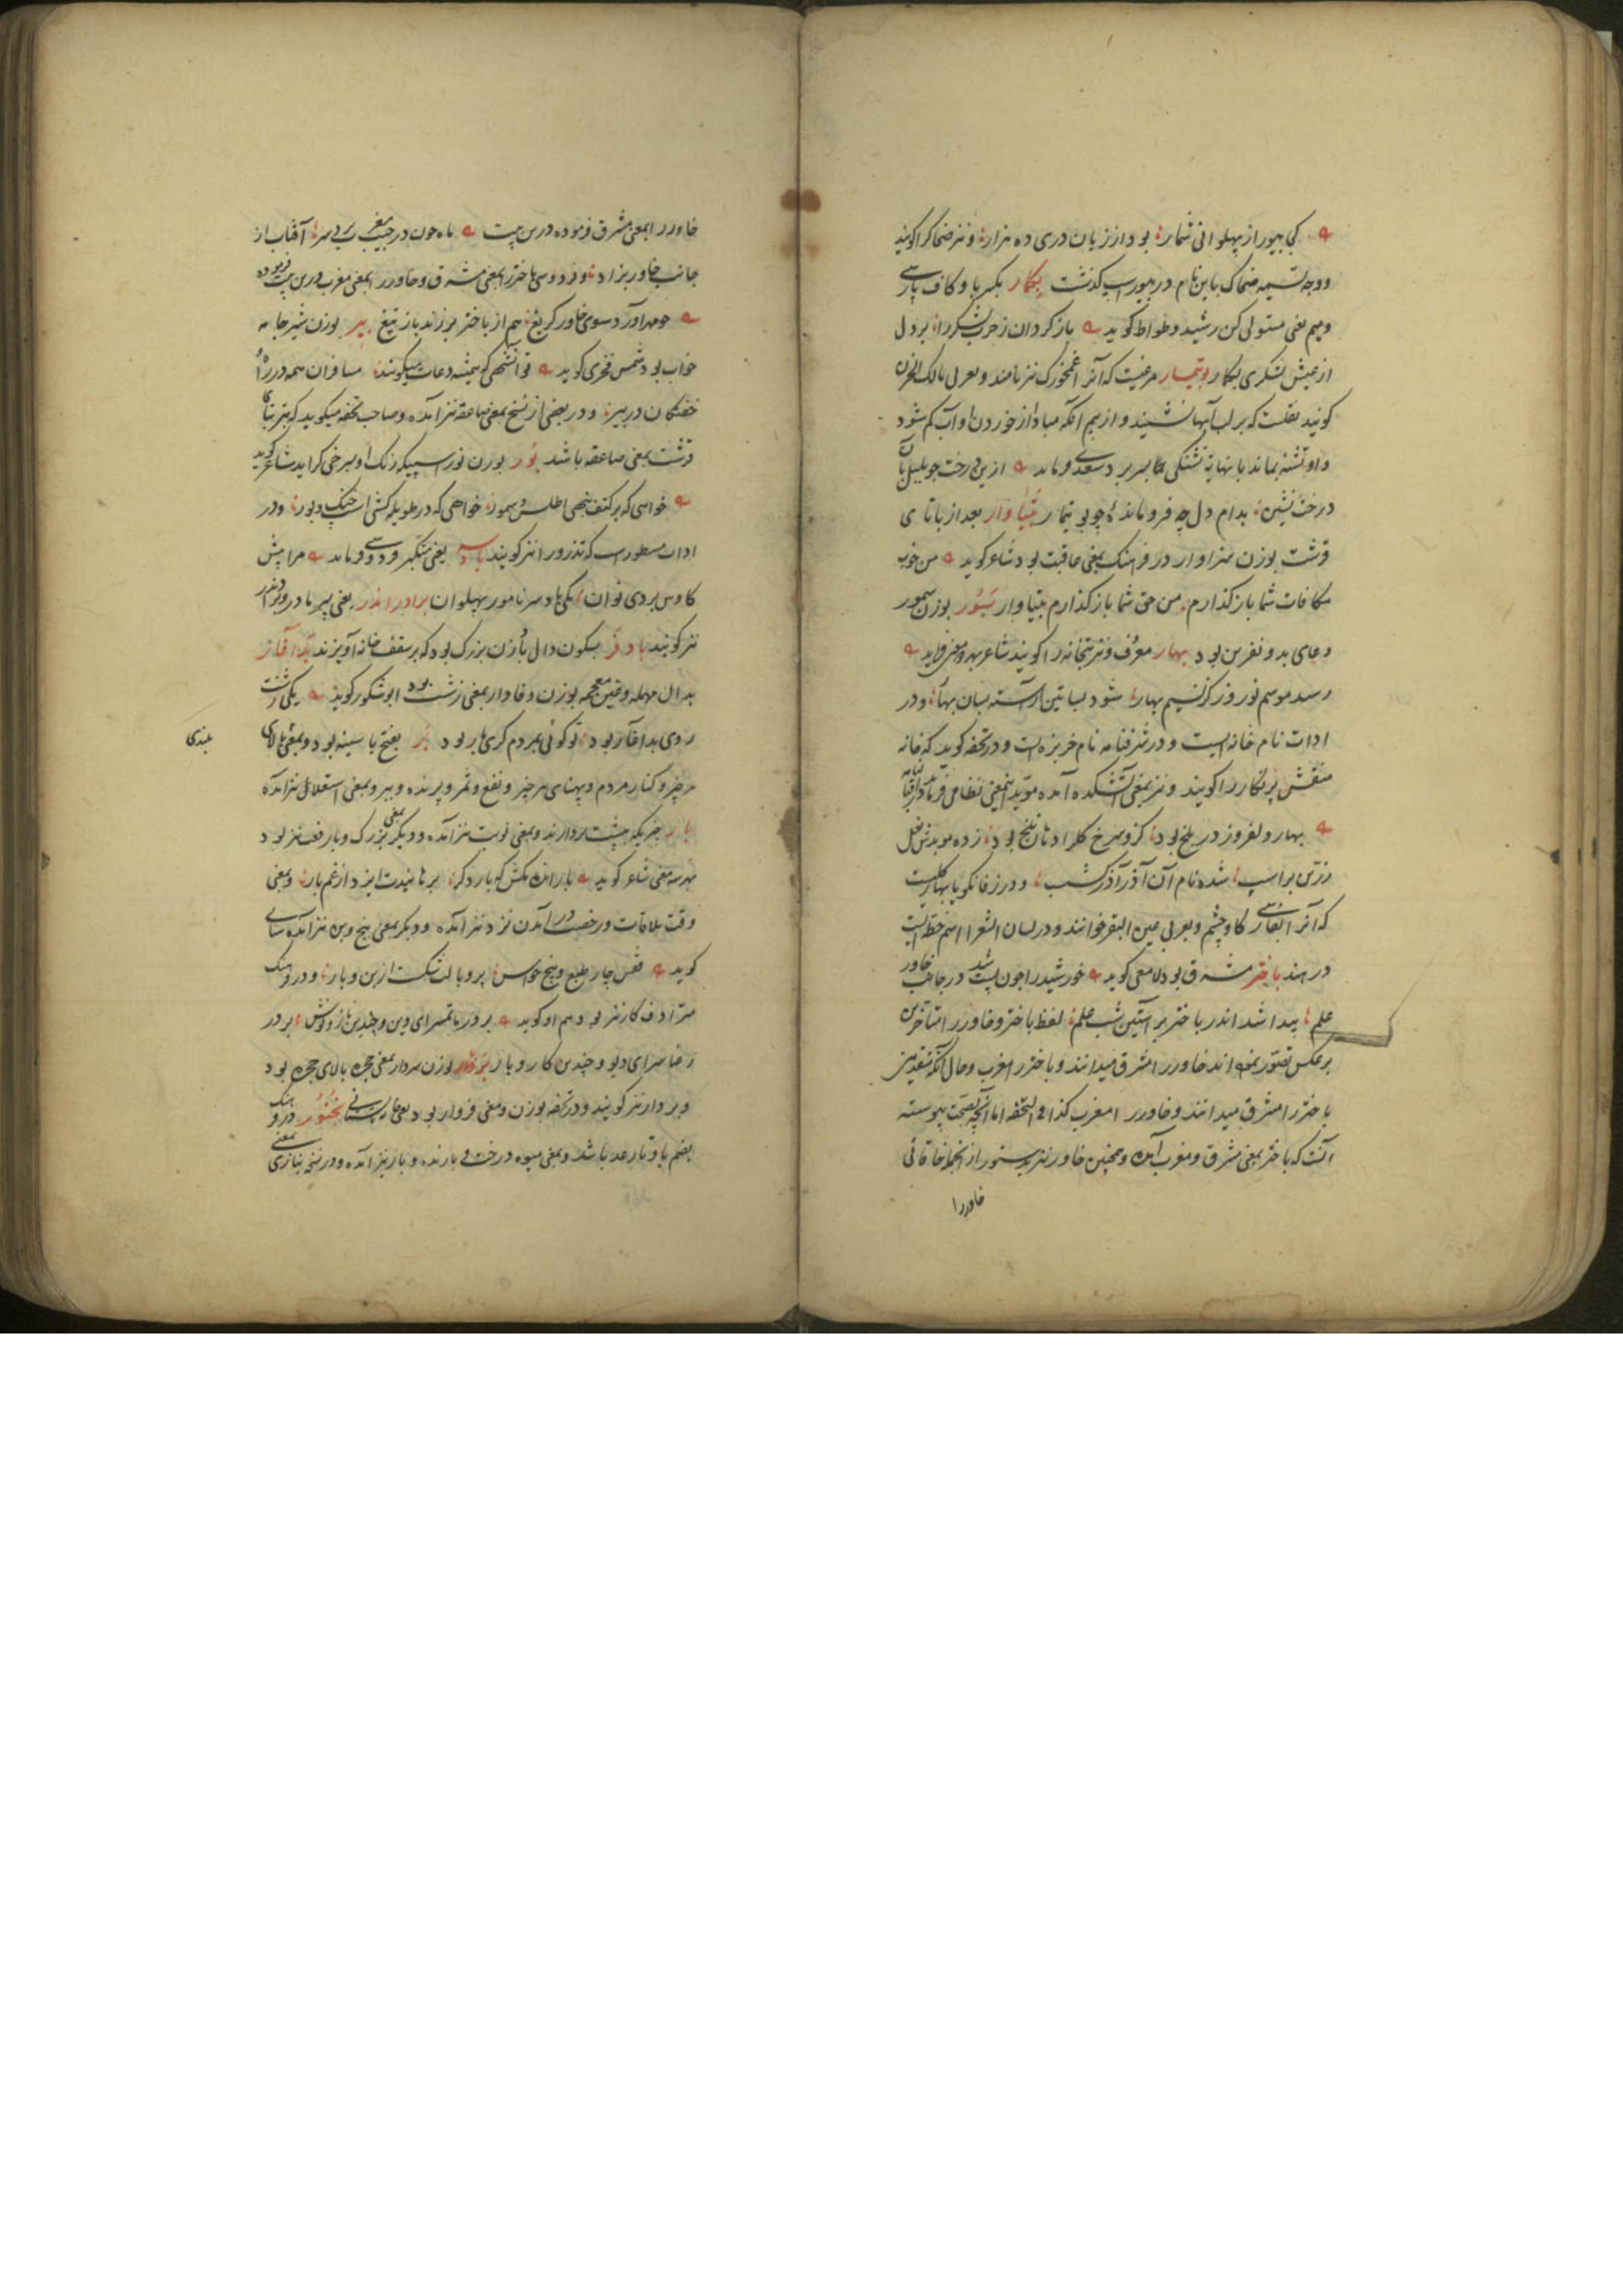 کجا بیور از پهلوانی شمار بود از زبان دری ده هزار و نیز ضحاک را گویند
و وجه تسمیه ضحاک باین نام در بیوراسپ گذشت بکمار بکسر با و کاف پارسی
و میم یعنی مستولی کن رشید وطواط گوید باز گردان ز حرب لشکر را بر دل
از عیش لشکری بکمار بوتیمار مرغیست که آنرا غمخورک نیز نامند و بعربی مالک الحزین
گویند نقلست که بر لب آبها نشیند و از بیم آنکه مبادا از خوردن او آب کم شود
و او تشنه بماند با نهایة تشنگی سعدی فرماید ازین درخت چو بلبل بآن
درخت نشین بدام دل چه فرومانده چو بوتیمار بتیاوار بعد از با تای
قرشت بوزن سزاوار در فرهنگ بمعنی عاقبت بود شاعر گوید من خوب
مکافات شما باز گذارم من حق شما باز گذارم بتیاوار بسور بوزن سمور
دعای بد و نفرین بود بهار معروف و نیز بتخانه را گویند شاعر
رسد موسم نوروز کز نسیم بهار شود بساتین آراسته بسان بهار و در
ادات نام خانه ایست و در شرفنامه نام خربزه است و در تحفه گوید که خانه
منقش پر نگار را گویند و نیز بمعنی آتشکده آمده مؤید اینمعنی نظامی فرماید
بهار دلفروز در بلخ بود کزو سرخ گل را دهان تلخ بود زده موبدش نعل
زرین بر اسپ شده نام آن آذر آذرگشسب و در زفانگویا بهار گلیست
که آنرا بفارسی گاوچشم و بعربی عین البقر خوانند و در لسان الشعرا اسم خطه ایست
در هند باختر مشرق بود لامعی گوید خورشید را چون پست شد در جانب خاور
علم پیدا شد اندر باختر بر آستین شب علم لفظ باختر و خاور را متأخرین
برعکس تصور نموده اند خاور را مشرق میدانند و باختر را مغرب و حال آنکه متقدمین
باختر را مشرق میدانند و خاور را مغرب کذا فی التحفه اما آنچه بصحت پیوسته
آنست که باختر بمعنی مشرق و مغرب آمده و همچنین خاور نیز بدستور از آنجمله خاقانی
خاور را
خاور را بمعنی مشرق فرموده درین بیت ماه چون در جیب مغرب برد سر آفتاب از
جانب خاور بزاد و فردوسی باختر را بمعنی مشرق و خاور را بمعنی مغرب درین بیت فرموده
چو مهر آورد سوی خاور گریغ هم از باختر برزند باز تیغ بیر بوزن شیر جامه
خواب بود شمس فخری گوید تو آنشهی که همیشه دعات میگویند مسافران همه در راه
خفتگان در بیر و در بعضی از نسخ بمعنی صاعقه نیز آمده و صاحب تحفه میگوید که بتیر بتای
قرشت بمعنی صاعقه باشد بور بوزن نور اسپیکه رنگ او بسرخی گراید شاعر گوید
خواهی که بر کتف نهی اطلس و سمور خواهی که در طویله کشی اسپ خنگ و بور و در
ادات مسطور است که تذرو را نیز گویند بادسر یعنی متکبر فردوسی فرماید مرا پیش
کاوس بردی نوان یکی بادسر نامور پهلوان برادراندر یعنی پسر مادر
نیز گویند بادفر بسکون دال بادزن بزرگ بود که بر سقف خانه آویزند بداغاز
بدال مهمله و غین معجمه بوزن وفادار بمعنی زشت بود ابوشکور گوید یکی زشت
روی بداغاز بود تو گوئی بمردم گزی مار بود بر بفتح با سینه بود و بمعنی بالای
بلندی
هر چیز و کنار مردم و پهنای هر چیز و نفع و ثمر و پرنده و ببر و بمعنی استعلا نیز آمده
بار چیزیکه بپشت بردارند و بمعنی نوبت نیز آمده و دیگر بمعنی بزرگ و با رفعت نیز بود
بهر سه معنی شاعر گوید بار اندوه مکش که بار دگر برهانیدت ایزد از غم بار و بمعنی
وقت ملاقات و رخصت در آمدن نزد نیز آمده و دیگر بمعنی بیخ و بن نیز آمده سنائی
گوید قفس چار طبع و پنج حواس پر و بالت شکست از بن و بار و در فرهنگ
مترادف کار نیز بود هم او گوید بر در ماتمسرای دین و چندین ناز و نوش بر در
رعناسرای دیو و چندین کار و بار بروار بوزن سردار بمعنی حجره بالای حجره بود
و بربار نیز گویند و در تحفه بوزن و معنی فروار بود یعنی تابستانی بختور در فرهنگ
بضم با و تا رعد باشد و بمعنی میوه درختی بارنده و بار نیز آمده و در نسخه نیازی